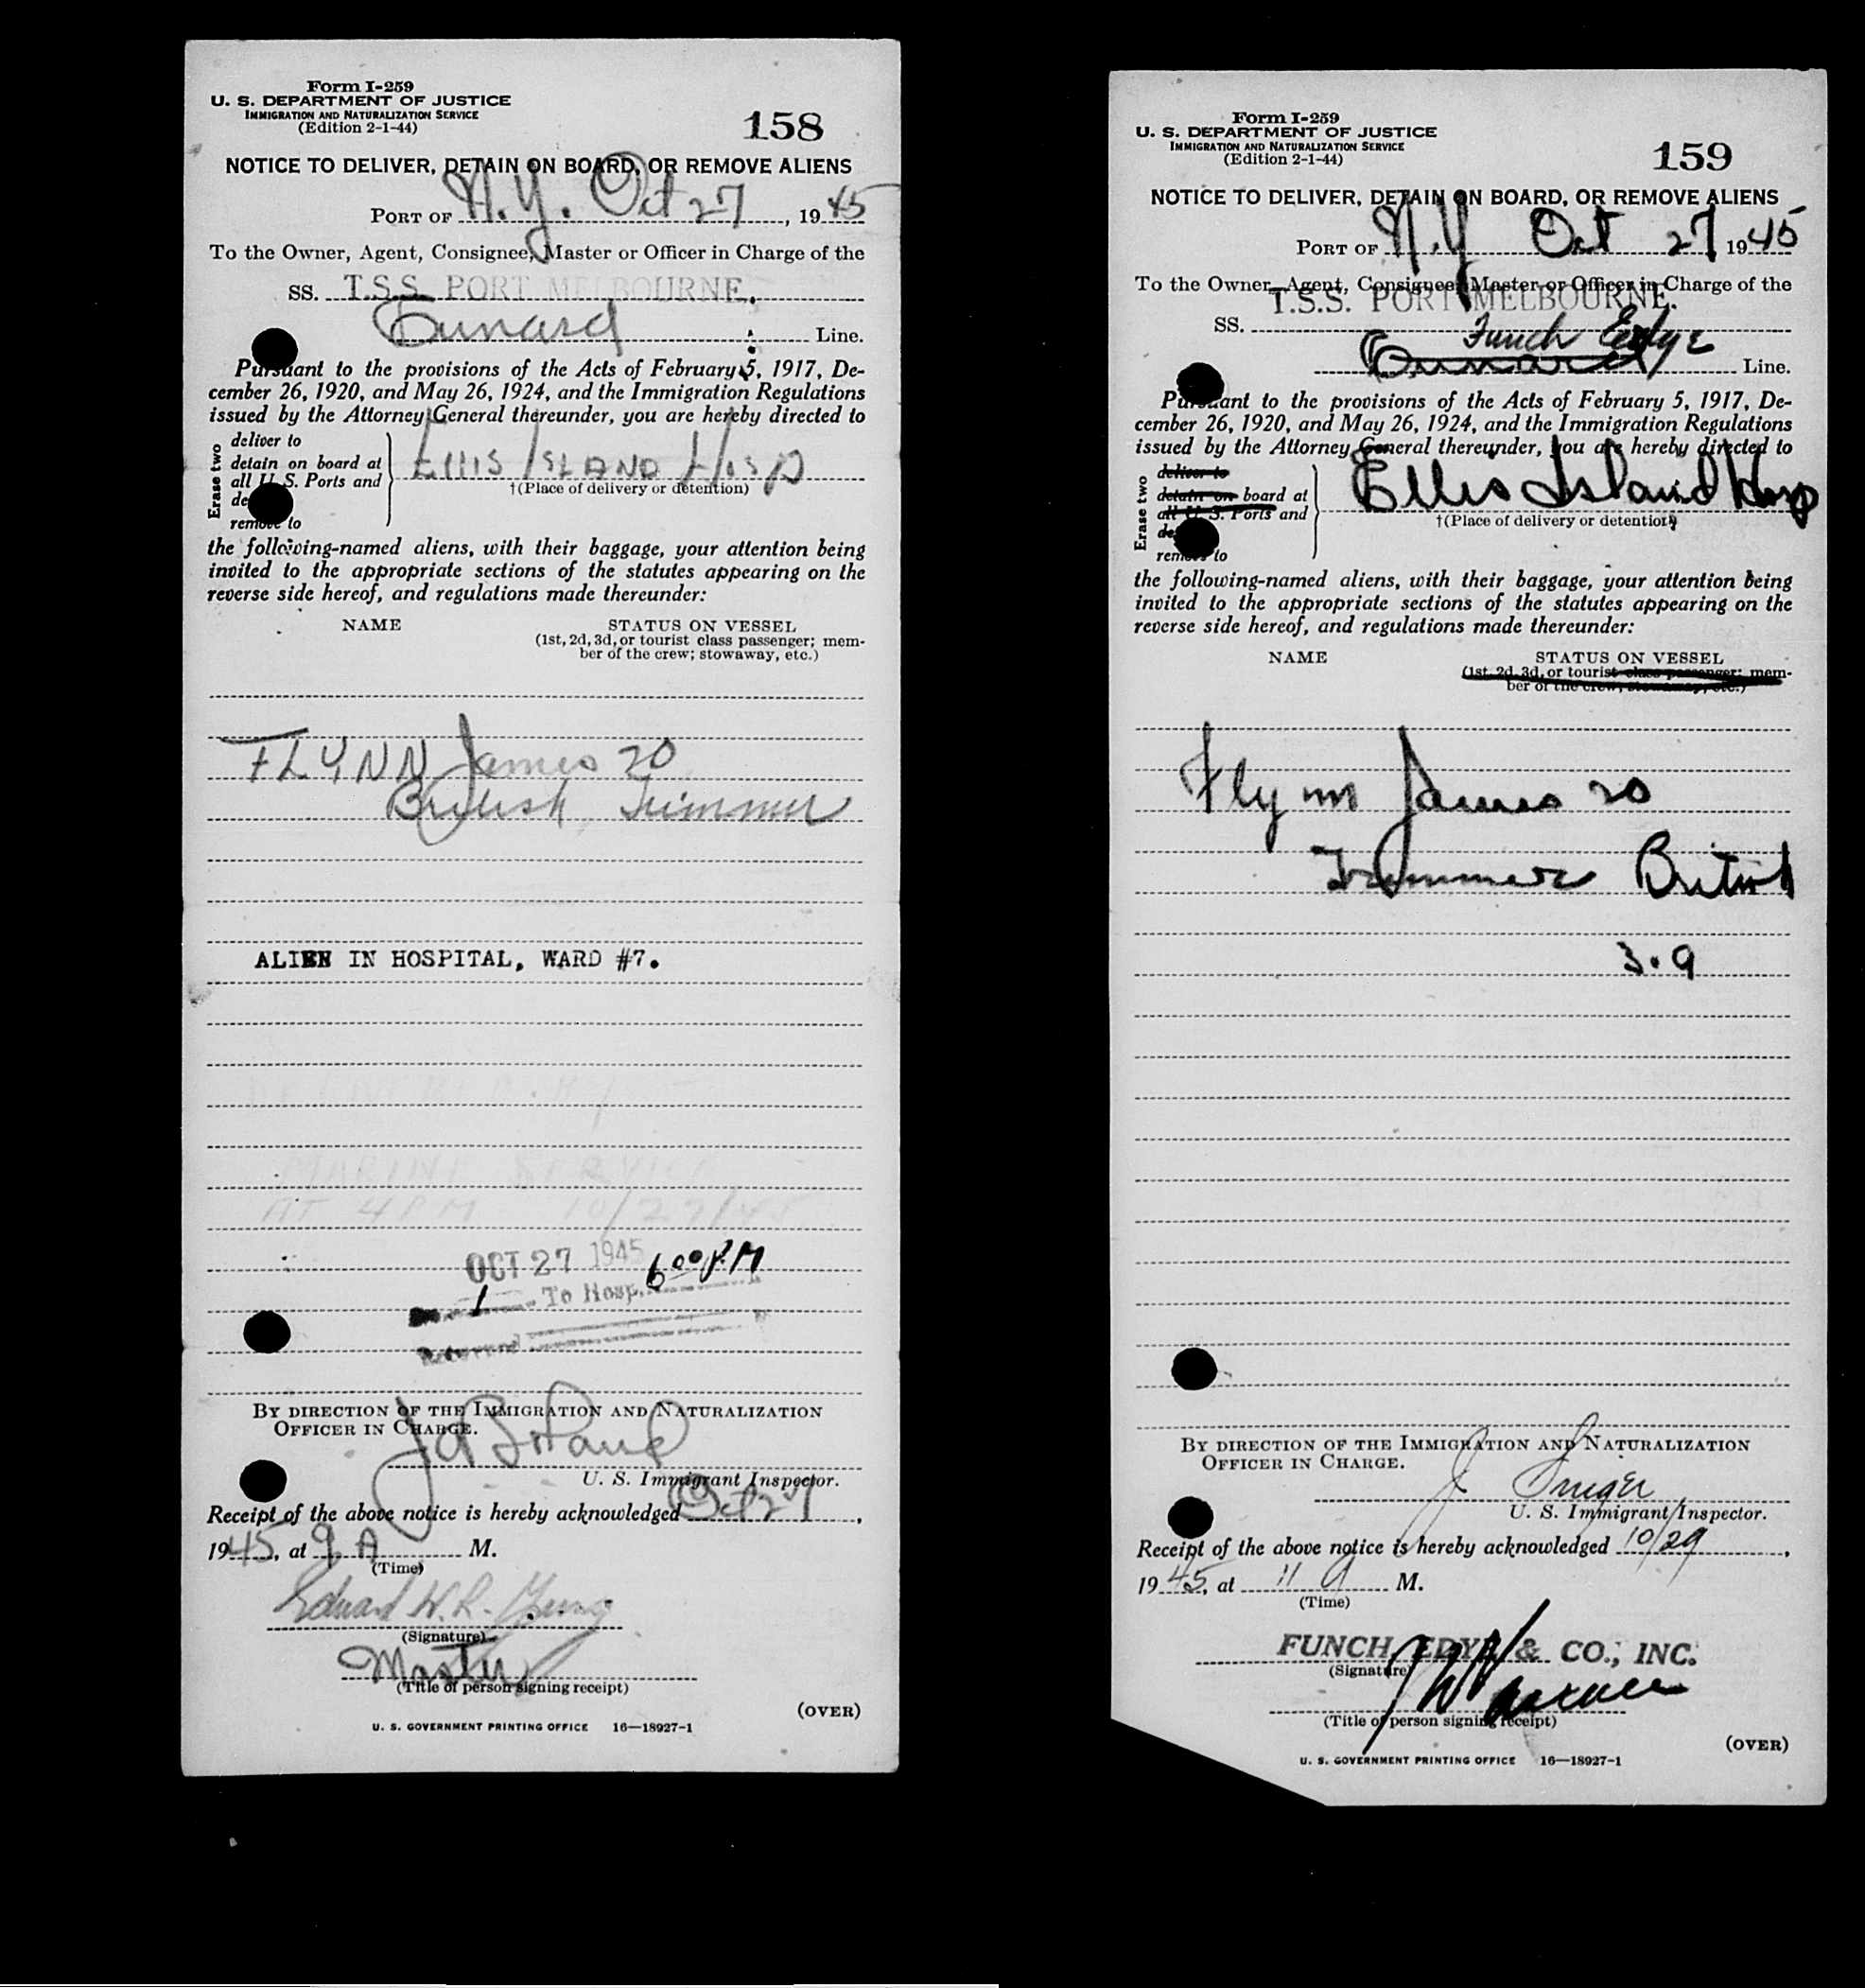 Form I-259
U. S. DEPARTMENT OF JUSTICE
IMMIGRATION AND NATURALIZATION SERVICE
(Edition 2-1-44)
158
NOTICE TO DELIVER, DETAIN ON BOARD, OR REMOVE ALIENS
PORT OF N.Y. Oct 27, 1945
To the Owner, Agent, Consignee, Master or Officer in Charge of the
SS. T.S.S. PORT MELBOURNE.
Cunard Line.
Pursuant to the provisions of the Acts of February 5, 1917, De-
cember 26, 1920, and May 26, 1924, and the Immigration Regulations
issued by the Attorney General thereunder, you are hereby directed to
Erase two
deliver to
detain on board at
all U. S. Ports and
de
remove to
ELLIS ISLAND HOSP
†(Place of delivery or detention)
the following-named aliens, with their baggage, your attention being
invited to the appropriate sections of the statutes appearing on the
reverse side hereof, and regulations made thereunder:
NAME STATUS ON VESSEL
(1st, 2d, 3d, or tourist class passenger; mem-
ber of the crew; stowaway, etc.)
FLYNN James 20
British Trimmer
ALIEN IN HOSPITAL, WARD #7.
MARINE SERVICE
AT 4 PM 10/27/45
OCT 27 1945 6 00 P.M
1 To Hosp.
Returned
BY DIRECTION OF THE IMMIGRATION AND NATURALIZATION
OFFICER IN CHARGE.
U. S. Immigrant Inspector.
Receipt of the above notice is hereby acknowledged Oct 27,
1945, at 9 A M.
(Time)
Edward W. R. Young
(Signature)
Master
(Title of person signing receipt)
(OVER)
U. S. GOVERNMENT PRINTING OFFICE 16—18927-1
Form I-259
U. S. DEPARTMENT OF JUSTICE
IMMIGRATION AND NATURALIZATION SERVICE
(Edition 2-1-44)
159
NOTICE TO DELIVER, DETAIN ON BOARD, OR REMOVE ALIENS
PORT OF N.Y Oct 27 1945
To the Owner, Agent, Consignee, Master or Officer in Charge of the
SS. T.S.S. PORT MELBOURNE.
Funch Edye
Cunard Line.
Pursuant to the provisions of the Acts of February 5, 1917, De-
cember 26, 1920, and May 26, 1924, and the Immigration Regulations
issued by the Attorney General thereunder, you are hereby directed to
Erase two
deliver to
detain on board at
all U. S. Ports and
de
remove to
Ellis Island Hosp
†(Place of delivery or detention)
the following-named aliens, with their baggage, your attention being
invited to the appropriate sections of the statutes appearing on the
reverse side hereof, and regulations made thereunder:
NAME STATUS ON VESSEL
(1st, 2d, 3d, or tourist class passenger; mem-
ber of the crew; stowaway, etc.)
Flynn James 20
Trimmer British
3.9
BY DIRECTION OF THE IMMIGRATION AND NATURALIZATION
OFFICER IN CHARGE.
J
U. S. Immigrant Inspector.
Receipt of the above notice is hereby acknowledged 10/29,
1945, at 11 A M.
(Time)
FUNCH, EDYE & CO., INC.
(Signature)
(Title of person signing receipt)
(OVER)
U. S. GOVERNMENT PRINTING OFFICE 16—18927-1